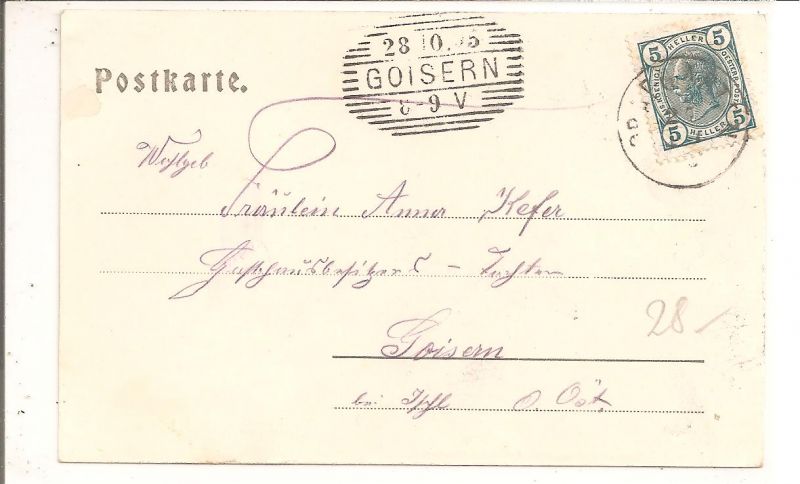 Postkarte.
28 10. 05
GOISERN
8-9 V
5 HELLER 5
5 HELLER 5
Wohlgeb
Fräulein Anna Kefer
Gasthausbesitzers - Tochter
Goisern
bei Ischl O. Öst.
28 -